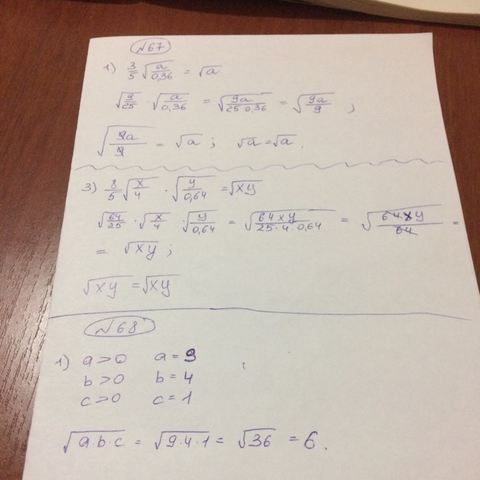 №67
1) 3/5 √(a/0,36) = √a
√(9/25) · √(a/0,36) = √(9a/(25·0,36)) = √(9a/9) ;
√(9a/9) = √a ; √a = √a .
3) 8/5 √(x/4) · √(y/0,64) = √xy
√(64/25) · √(x/4) · √(y/0,64) = √(64xy/(25·4·0,64)) = √(64xy/64) =
= √xy ;
√xy = √xy
№68
1) a>0 a = 9
b>0 b = 4
c>0 c = 1
√(a·b·c) = √(9·4·1) = √36 = 6.